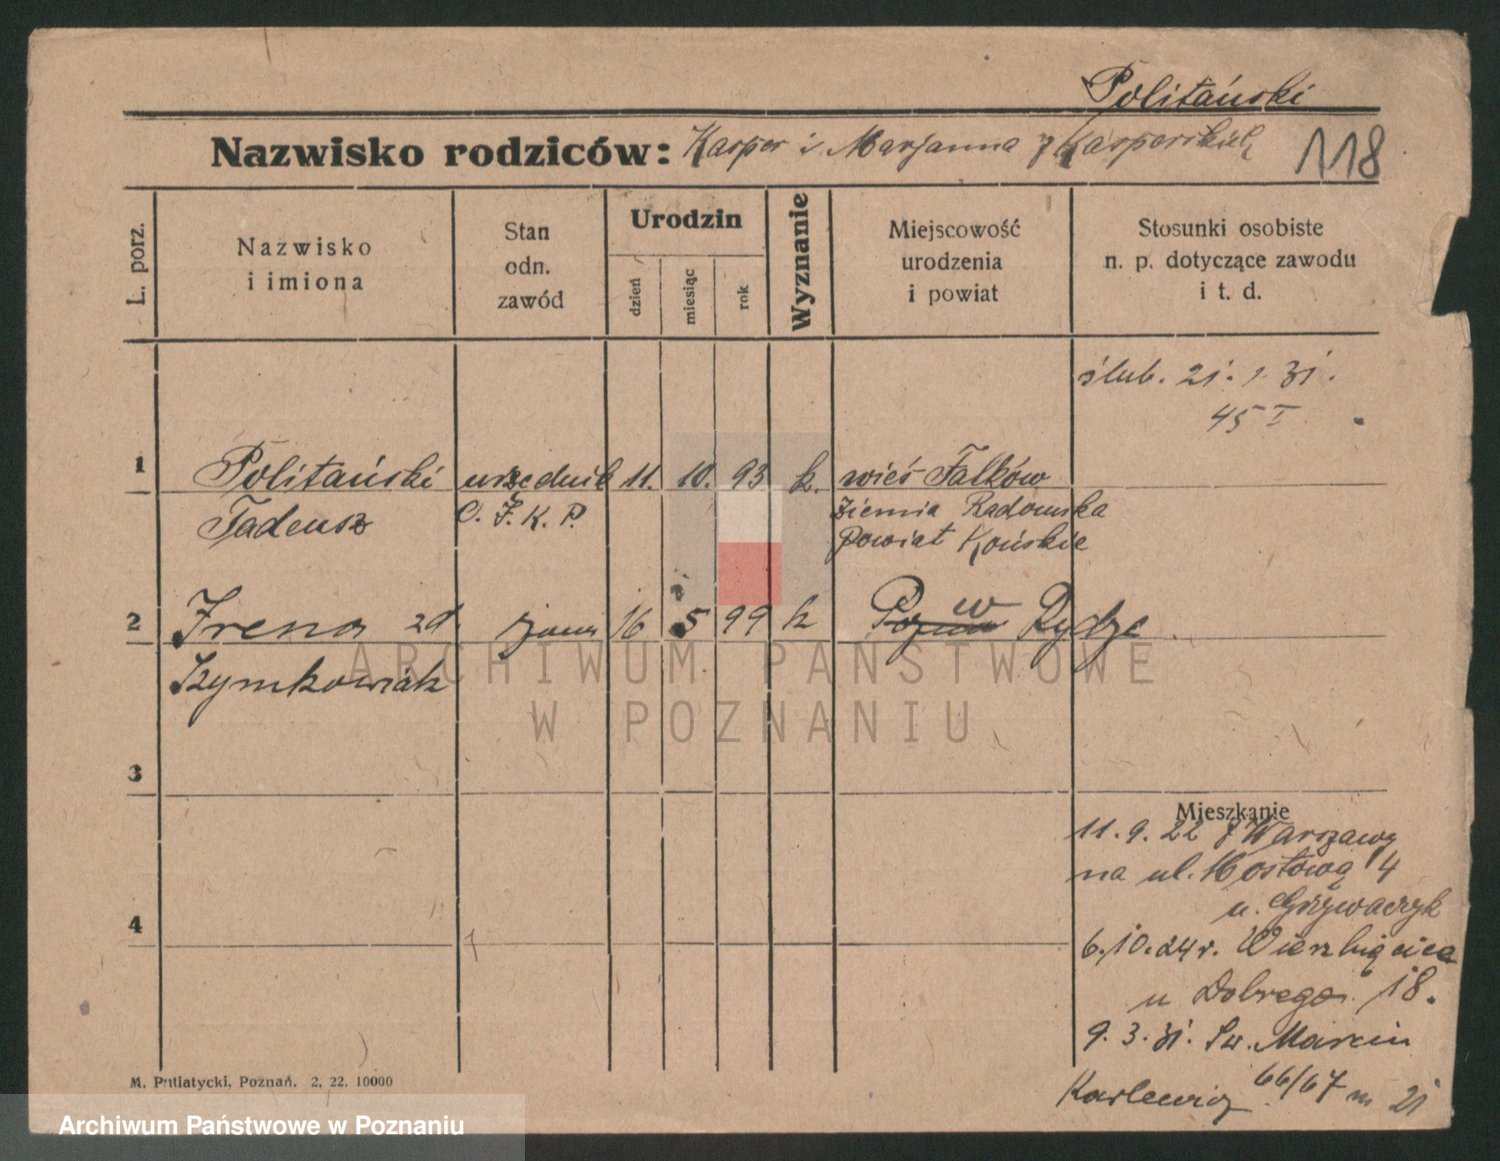 Politański
Nazwisko rodziców: Kasper i Marjanna z Kasperskich
118
L. porz.
Nazwisko
i imiona
Stan
odn.
zawód
Urodzin
dzień
miesiąc
rok
Wyznanie
Miejscowość
urodzenia
i powiat
Stosunki osobiste
n. p. dotyczące zawodu
i t. d.
ślub. 21. 1. 31.
45 I
1 Politański urzędnik 11. 10. 93 k. wieś Falków
Tadeusz O. I. K. P. Ziemia Radomska
Powiat Końskie
2 Irena zd. żona 16 5 99 k w Rydze
Szymkowiak
ARCHIWUM PAŃSTWOWE
W POZNANIU
3
Mieszkanie
11. 9. 22 z Warszawy
na ul. Mostową 14
u. Grzywaczyk
4
6. 10. 24 r. Wierzbięcica
u Dobrego 18.
9. 3. 31. Św. Marcin
66/67 m 21
Karlewicz
M. Putiatycki, Poznań. 2. 22. 10000
Archiwum Państwowe w Poznaniu